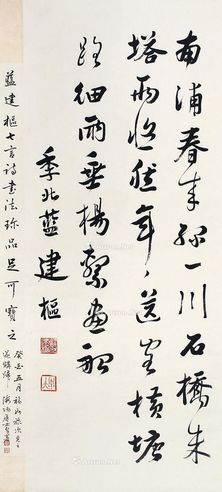 南浦春来綠一川石橋朱
塔兩依然年々送客橫塘
路細雨垂楊繫畫船
季北藍建樞
藍建樞七言詩書法珍品足可寶之
五月